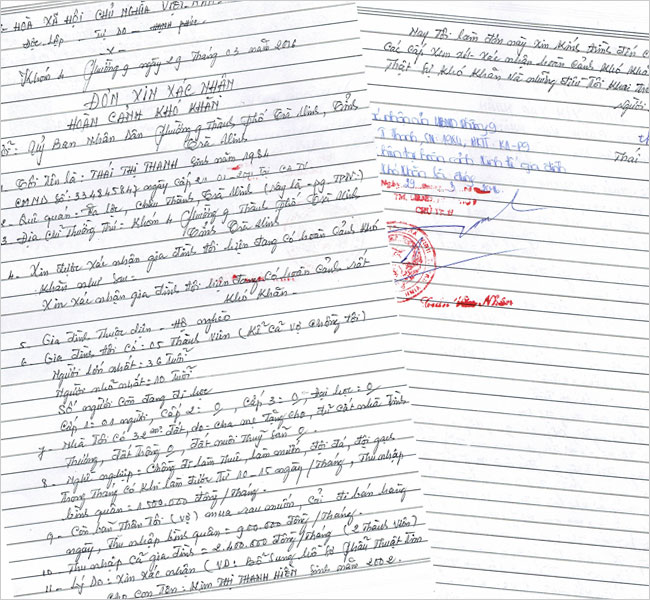 HOÀ XÃ HỘI CHỦ NGHĨA VIỆT NAM
Độc lập Tự Do Hạnh Phúc
Khóm 4 phường 9 ngày 29 Tháng 03 năm 2016
ĐƠN XIN XÁC NHẬN
HOÀN CẢNH KHÓ KHĂN
Uỷ Ban Nhân Dân Phường 9 Thành phố Trà Vinh, Tỉnh
Trà Vinh
1. Tôi Tên là: THÁI THỊ THANH Sinh năm 1984
CMND Số: 334345847 ngày Cấp
2. Quê quán: Đa Lộc, Châu Thành, Trà Vinh
3. Địa Chỉ Thường Trú: Khóm 4 phường 9 Thành phố Trà Vinh
Tỉnh Trà Vinh
4. Xin được xác nhận gia đình tôi hiện đang Có hoàn Cảnh khó
khăn như Sau:
Xin Xác nhận gia đình tôi hiện đang Có hoàn Cảnh rất
Khó Khăn
5. Gia đình Thuộc diện - Hộ nghèo
6. Gia đình tôi Có: 05 Thành viên (Kể Cả vợ Chồng Tôi)
Người lớn nhất: 36 Tuổi
Người nhỏ nhất: 10 Tuổi
Số người Còn đang đi học
Cấp 1: 01 người, Cấp 2 = 0, Cấp 3 = 0, Đại học = 0
7. Nhà Tôi Có 32m² đất, do Cha mẹ Tặng Cho, Tự Cất nhà Tình
Thương, đất Trồng 0, đất nuôi Thuỷ Sản 0.
8. Nghề nghiệp = Chồng đi làm Thuê, làm mướn
Trong Tháng Có Khi làm được Từ 10 - 15 ngày / Tháng, Thu nhập
bình quân = 1.500.000 đồng / Tháng.
9. Còn bản Thân Tôi (vợ) mua rau muống, Cải đi bán hàng
ngày, Thu nhập bình quân = 900.000 đồng / Tháng.
10. Thu nhập Cả gia đình = 2.400.000 đồng/Tháng (2 Thành viên)
11. Lý Do: Xin Xác nhận (VD: Bổ Sung hồ Sơ Phẩu Thuật Tim
Cho Con Tên: KIM THỊ THANH HIỀN Sinh năm 2002
Nay Tôi làm đơn này Xin Kính trình đến
Các Cấp Xem xét - Xác nhận hoàn Cảnh Khó Khăn
Thật Sự Khó Khăn và những điều Tôi Khai
người
Thái
xác nhận của UBND Phường 9
Thanh, SN 1984, K4-P9
hoàn cảnh kinh tế gia đình
Ngày 29
TM. UBND
CHỦ TỊCH
Nhân